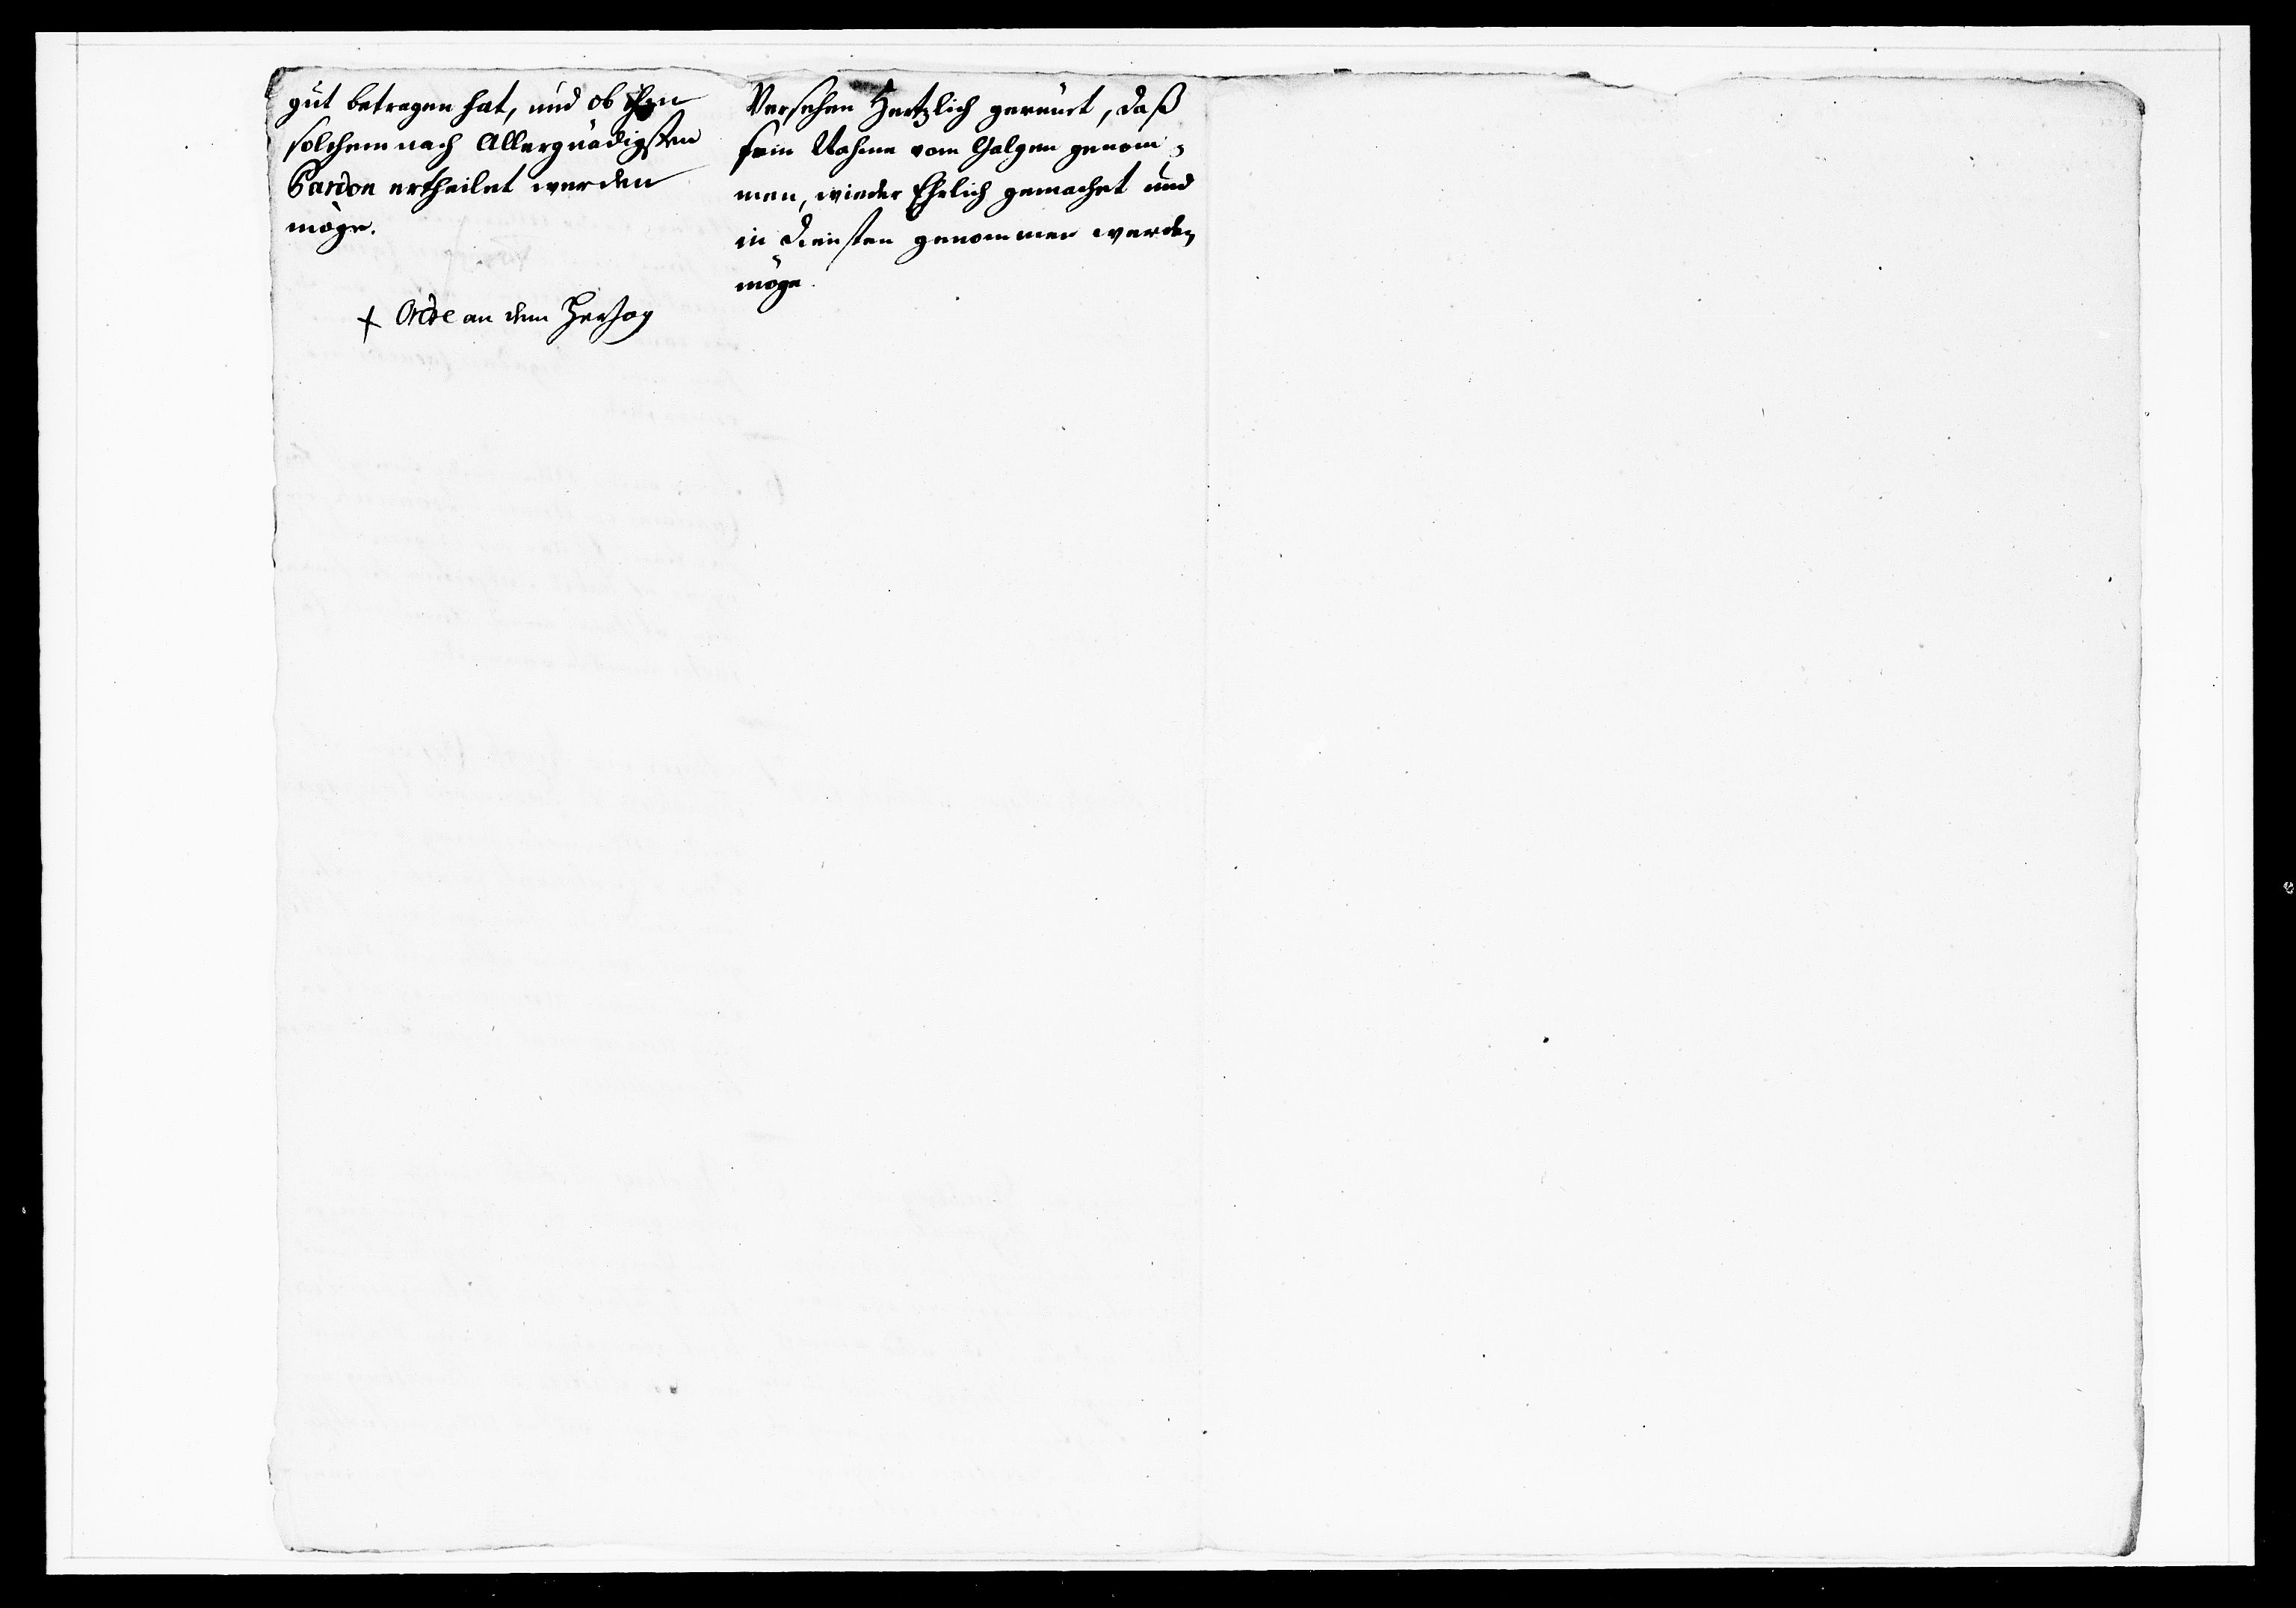 gut betragen hat, und ob ihm
solchemnach Allergnädigsten
Pardon ertheilet werden
möge.
† Ordre an dem Hertzog
Versehen Hertzlich gereüet, daß
sein Nahme vom Galgen genom-
men, wieder Ehrlich gemachet und
in Diensten genommen werden
möge.